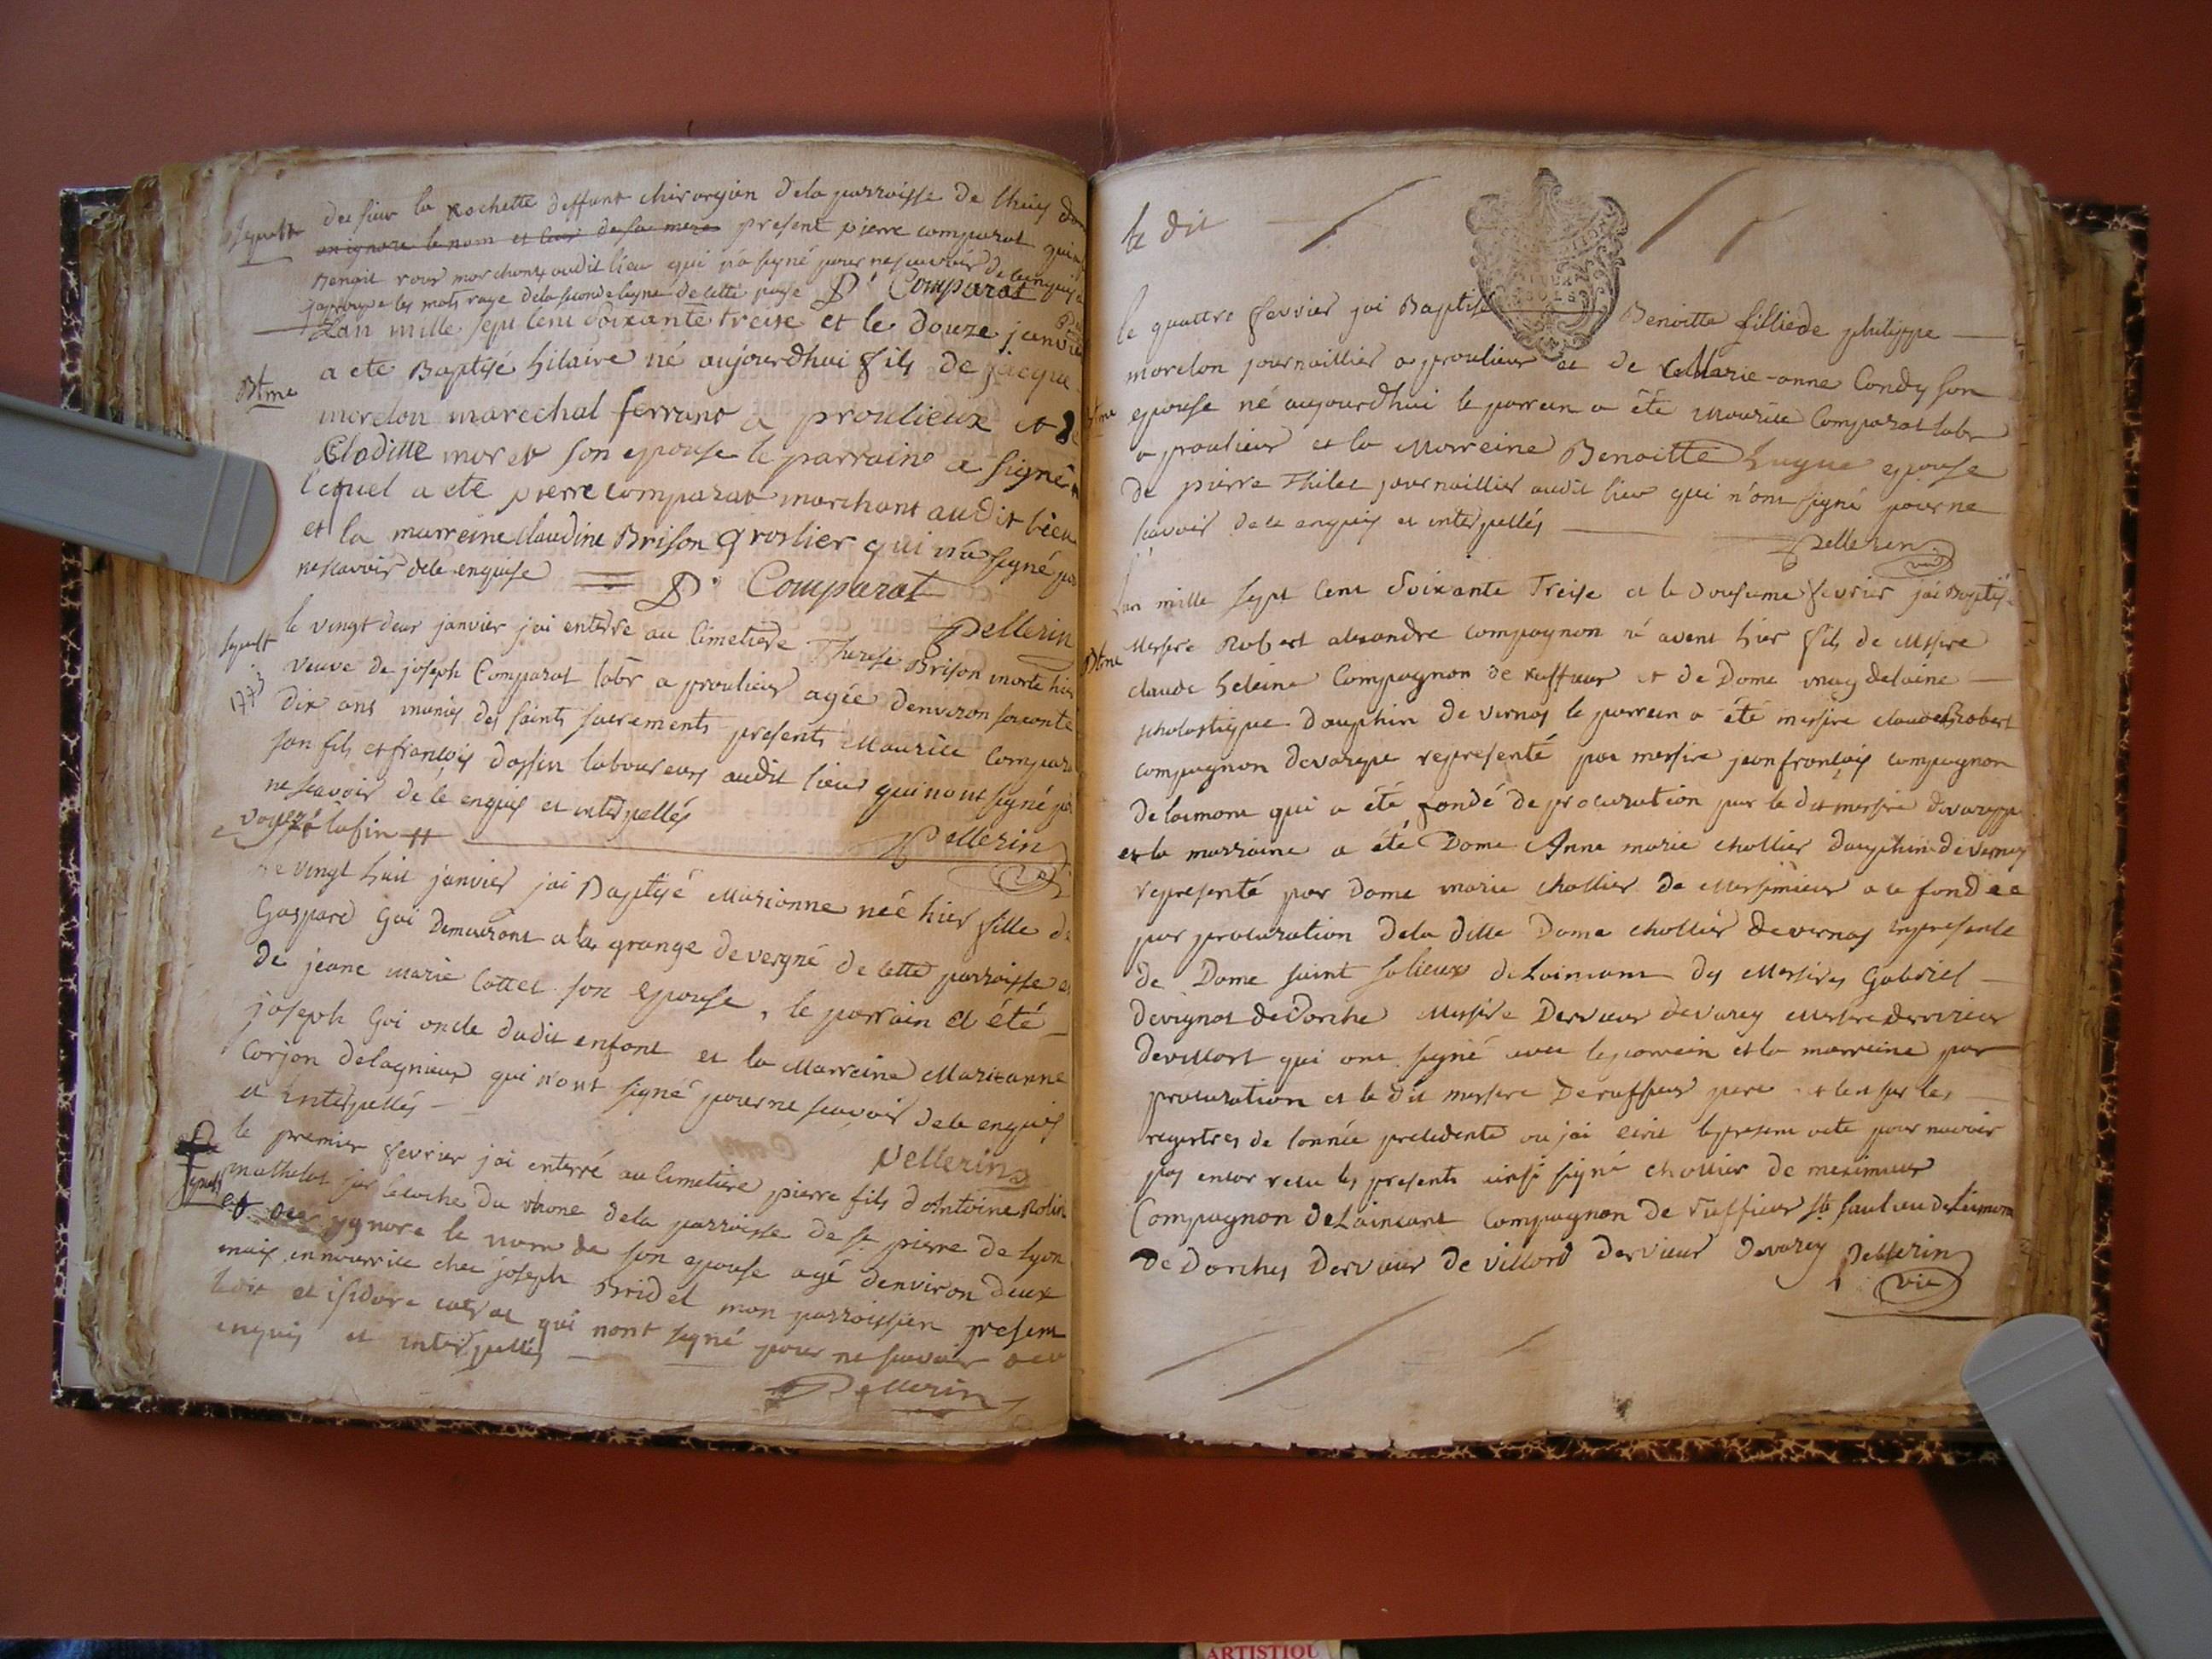 Sepult
du sieur la Rochette deffunt chirurgien dela parroisse de
en ignore le nom et de sa mere present pierre comparat qui
Benoit roux marchant audit lieu qui n'a signé pour ne scavoir de ce enquis
japrouve les mots raye dela seconde ligne de cette page P. Comparat
Lan mille sept cent soixante treise et le douze janvier
a ete Baptisé hilaire né aujourdhui fils de jacque
Btme
morelon marechal ferrant a proulieux et de
Cloditte moret son epouse le parrain a signé
lequel a ete pierre comparat marchant audit lieu
et la marreine Claudine Brison Groslier qui n'a signé pour
ne scavoir dece enquise P. Comparat
Pellerin
Sepult
1773
le vingt deux janvier jai enterré au Cimetiere Therese Brison morte hier
veuve de joseph Comparat labr a proulieux agée denviron soixante
dix ans munies des saints sacrements presents Maurice Compara
son fils et françois dossin laboureurs audit lieu qui nont signé pour
ne scavoir de ce enquis et interpellés
voyez a la fin # Pellerin
le vingt huit janvier jai Baptisé Marianne née hier fille de
Gaspard Goi Demeurant a la grange de vergné de cette parroisse et
de jeane Marie Cottet son epouse, le parrain a été
joseph Goi oncle dudit enfant et la Marreine Marianne
Corjon delagnieux qui n'ont signé pour ne scavoir dece enquis
et interpellés
Pellerin
Sepult
le premier fevrier jai enterré au Cimetiere pierre fils d'Antoine Rolin
mathelot sur le coche du rhone dela parroisse de st pierre de lyon
et ignore le nom de son epouse agé denviron deux
mois en nourrice chez joseph Bridel mon parroissien present
et isidore qui nont signé pour ne scavoir dece
enquis et interpellés
Pellerin
le dit
le quattre fevrier jai Baptisé Benoitte fille de philippe
morelon journaillier a proulieux et de Marie-anne Condy son
Btme
epouse né aujourdhui le parrein a été Maurice Comparat labr
a proulieux et la Marreine Benoitte hugue epouse
de pierre Thilet journaillier audit lieu qui n'ont signé pour ne
scavoir dece enquis et interpellés
Pellerin
vic
Lan mille sept cent soixante Treise et le dousieme fevrier jai Baptisé
Btme
Messire Robert alexandre compagnon né avant hier fils de Messire
claude heleine Compagnon de ruffieux et de Dame magdelaine
scholastique Dauphin de vernas le parrein a été messire claude Robert
compagnon devareppe representé par messire jean françois compagnon
de laimont qui a été fondé de procuration par le dit messire devareppe
et la marraine a été Dame Anne marie chollier dauphin de vernas
representé par dame marie chollier de Messimieux a ce fondée
par procuration dela ditte Dame chollier de vernas en presence
de Dame saint solieux de Laimant des Messires Gabriel
devignot de Dorche Messire Dervieux devarey Messire dervieux
devillart qui ont signé avec le parrein et la marreine par
procuration et le dit messire deruffieux pere et ce sur les
registres de lannée precedente ou jai ecrit le present acte pour navoir
pas encor recu les presents ainsi signé chollier de meximieux
Compagnon de Laimant Compagnon de ruffieux de Leimon
De Dorches Dervieux de villard dervieux devarey Pellerin
vic
ARTISTIQU